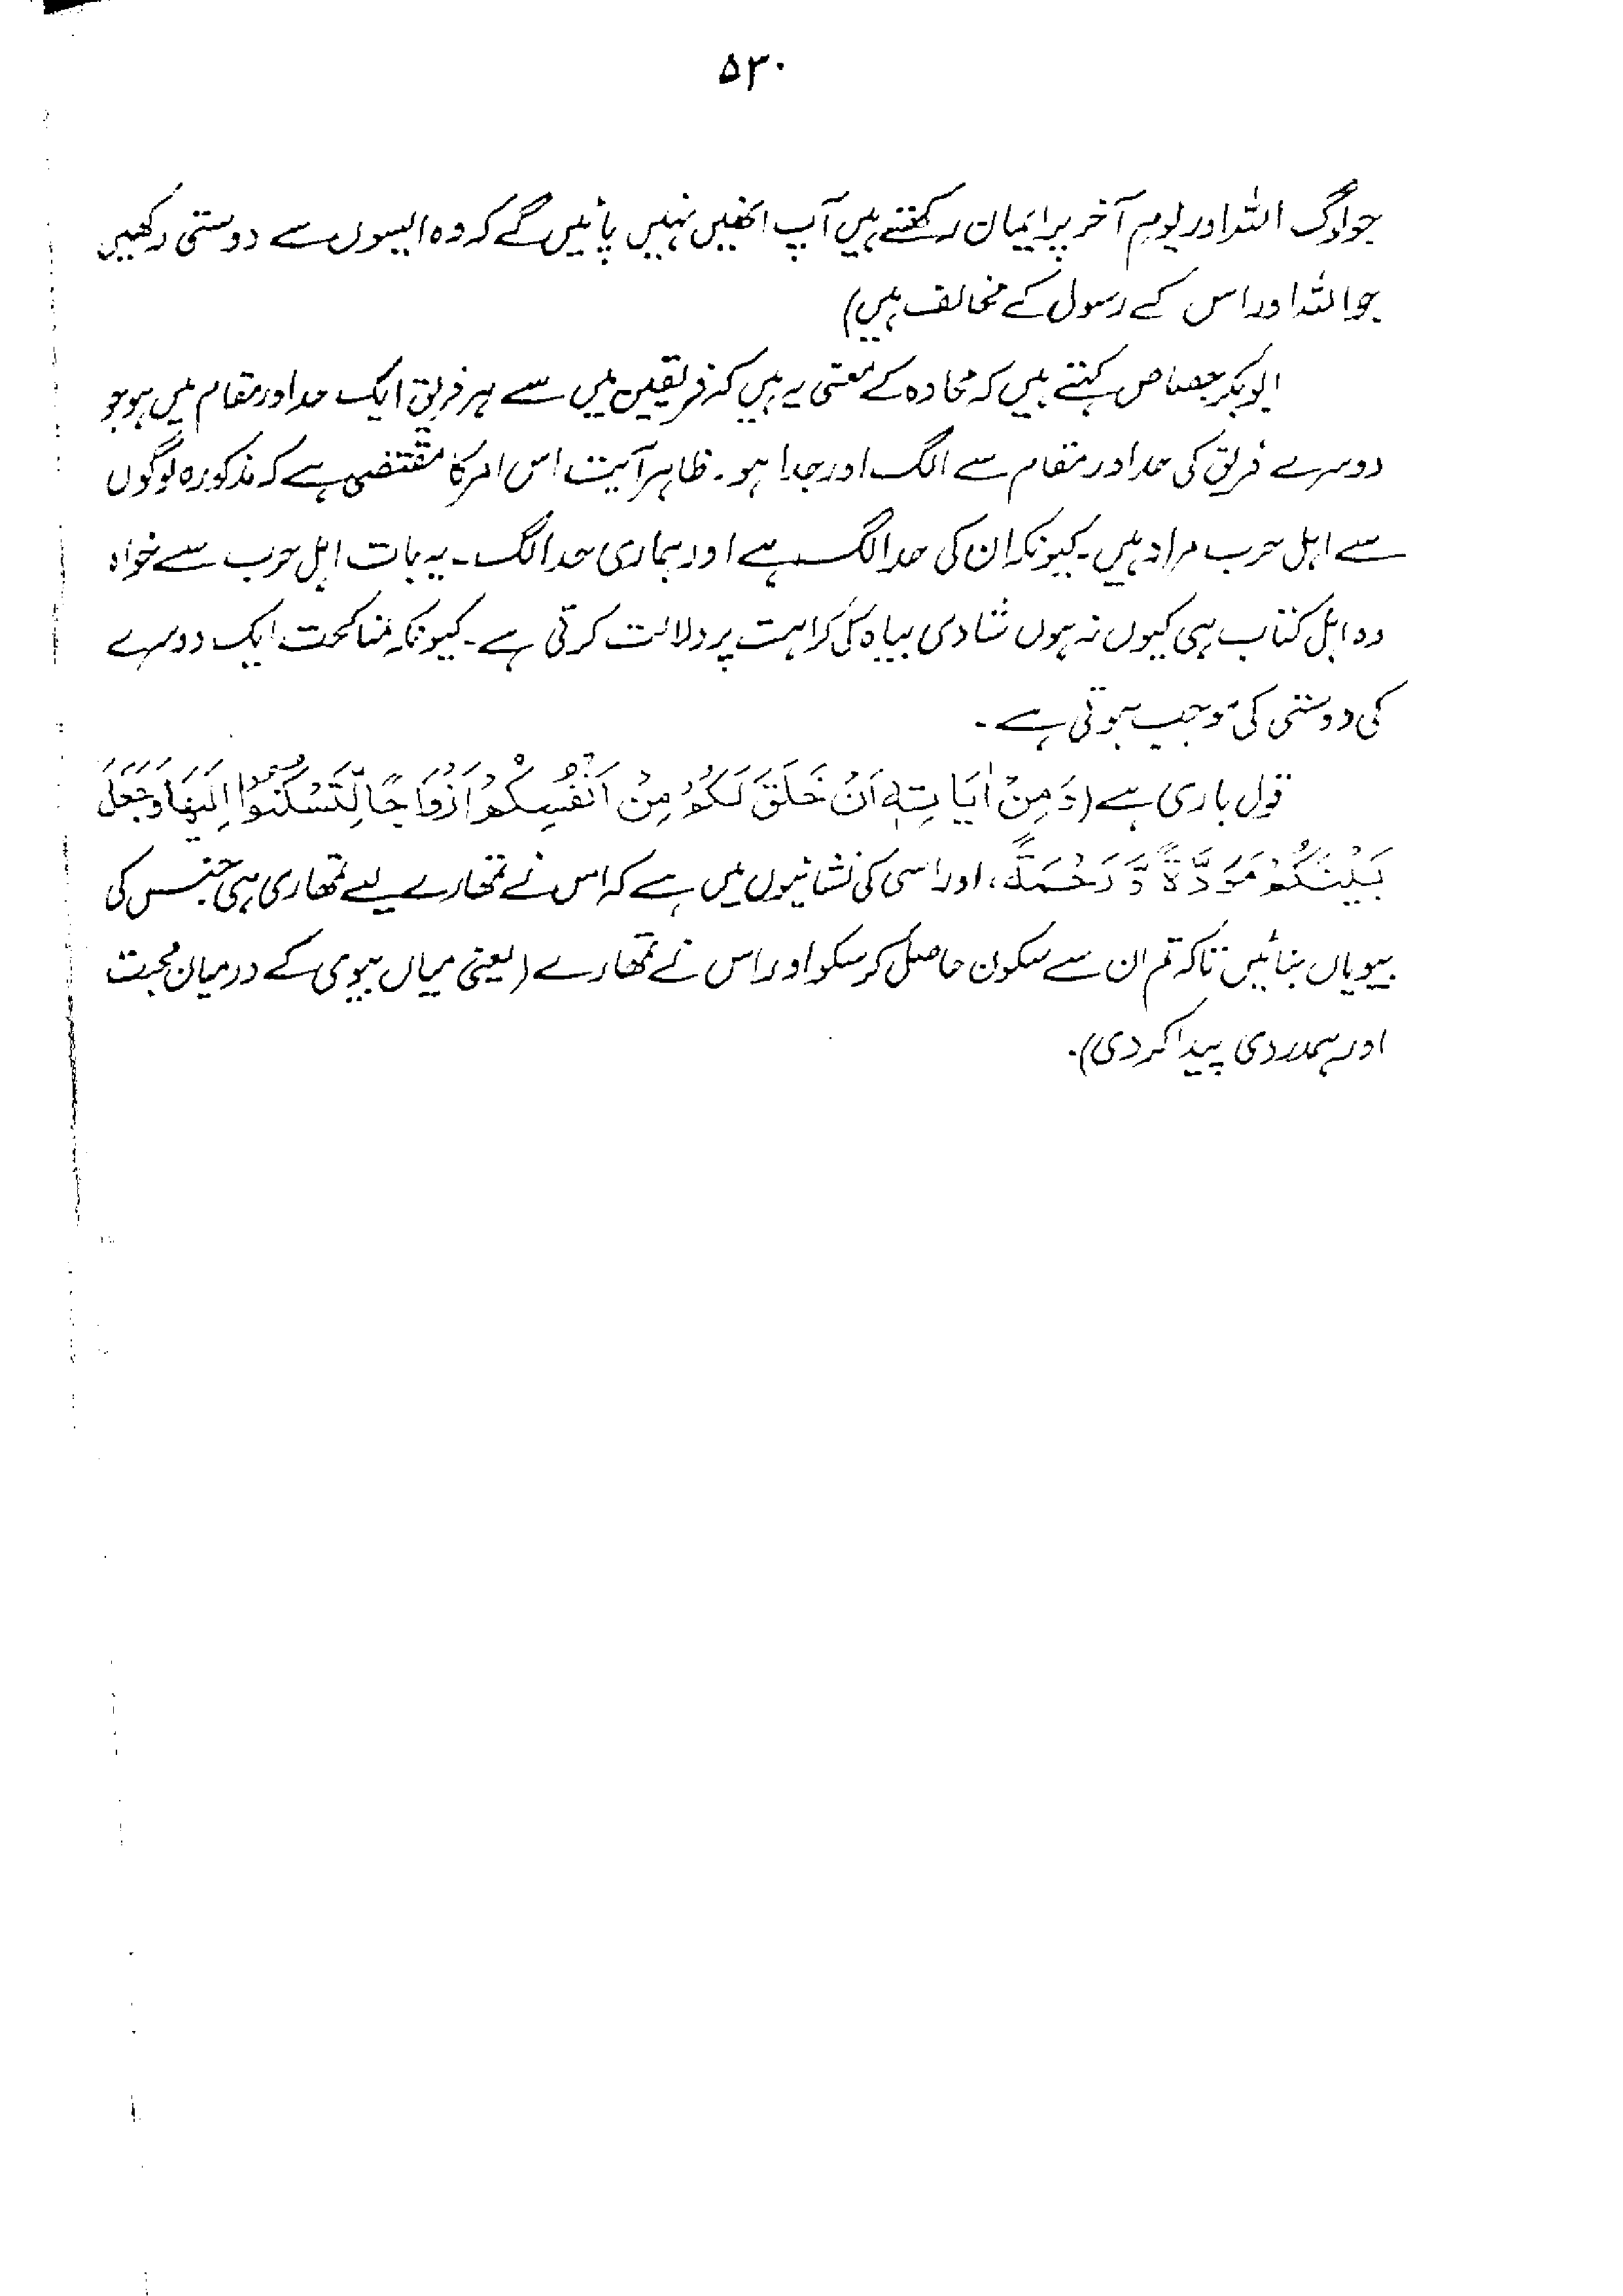 ۵۳۰
جو لوگ اللہ اور یوم آخر پر ایمان رکھتے ہیں آپ انھیں نہیں پائیں گے کہ وہ ایسوں سے دوستی رکھیں
جو اللہ اور اس کے رسول کے مخالف ہیں)
ابوبکر جصاص کہتے ہیں کہ محادہ کے معنی یہ ہیں کہ فریقین میں سے ہر فریق ایک حد اور مقام میں ہو جو
دوسرے فریق کی حد اور مقام سے الگ اور جدا ہو۔ ظاہر آیت اس امر کا مقتضی ہے کہ مذکورہ لوگوں
سے اہل حرب مراد ہیں۔ کیونکہ ان کی حد الگ ہے اور ہماری حد الگ۔ یہ بات اہل حرب سے خواہ
وہ اہل کتاب ہی کیوں نہ ہوں شادی بیاہ کی کراہت پر دلالت کرتی ہے۔ کیونکہ مناکحت ایک دوسرے
کی دوستی کی موجب ہوتی ہے۔
قول باری ہے (وَمِنْ اٰیَاتِہٖ اَنْ خَلَقَ لَکُمْ مِنْ اَنْفُسِکُمْ اَزْوَاجًا لِّتَسْکُنُوْا اِلَیْھَا وَجَعَلَ
بَیْنَکُمْ مَوَدَّةً وَّ رَحْمَةً، اور اسی کی نشانیوں میں ہے کہ اس نے تمھارے لیے تمھاری ہی جنس کی
بیویاں بنائیں تاکہ تم ان سے سکون حاصل کر سکو اور اس نے تمھارے (یعنی میاں بیوی کے درمیان محبت
اور ہمدردی پیدا کر دی)۔